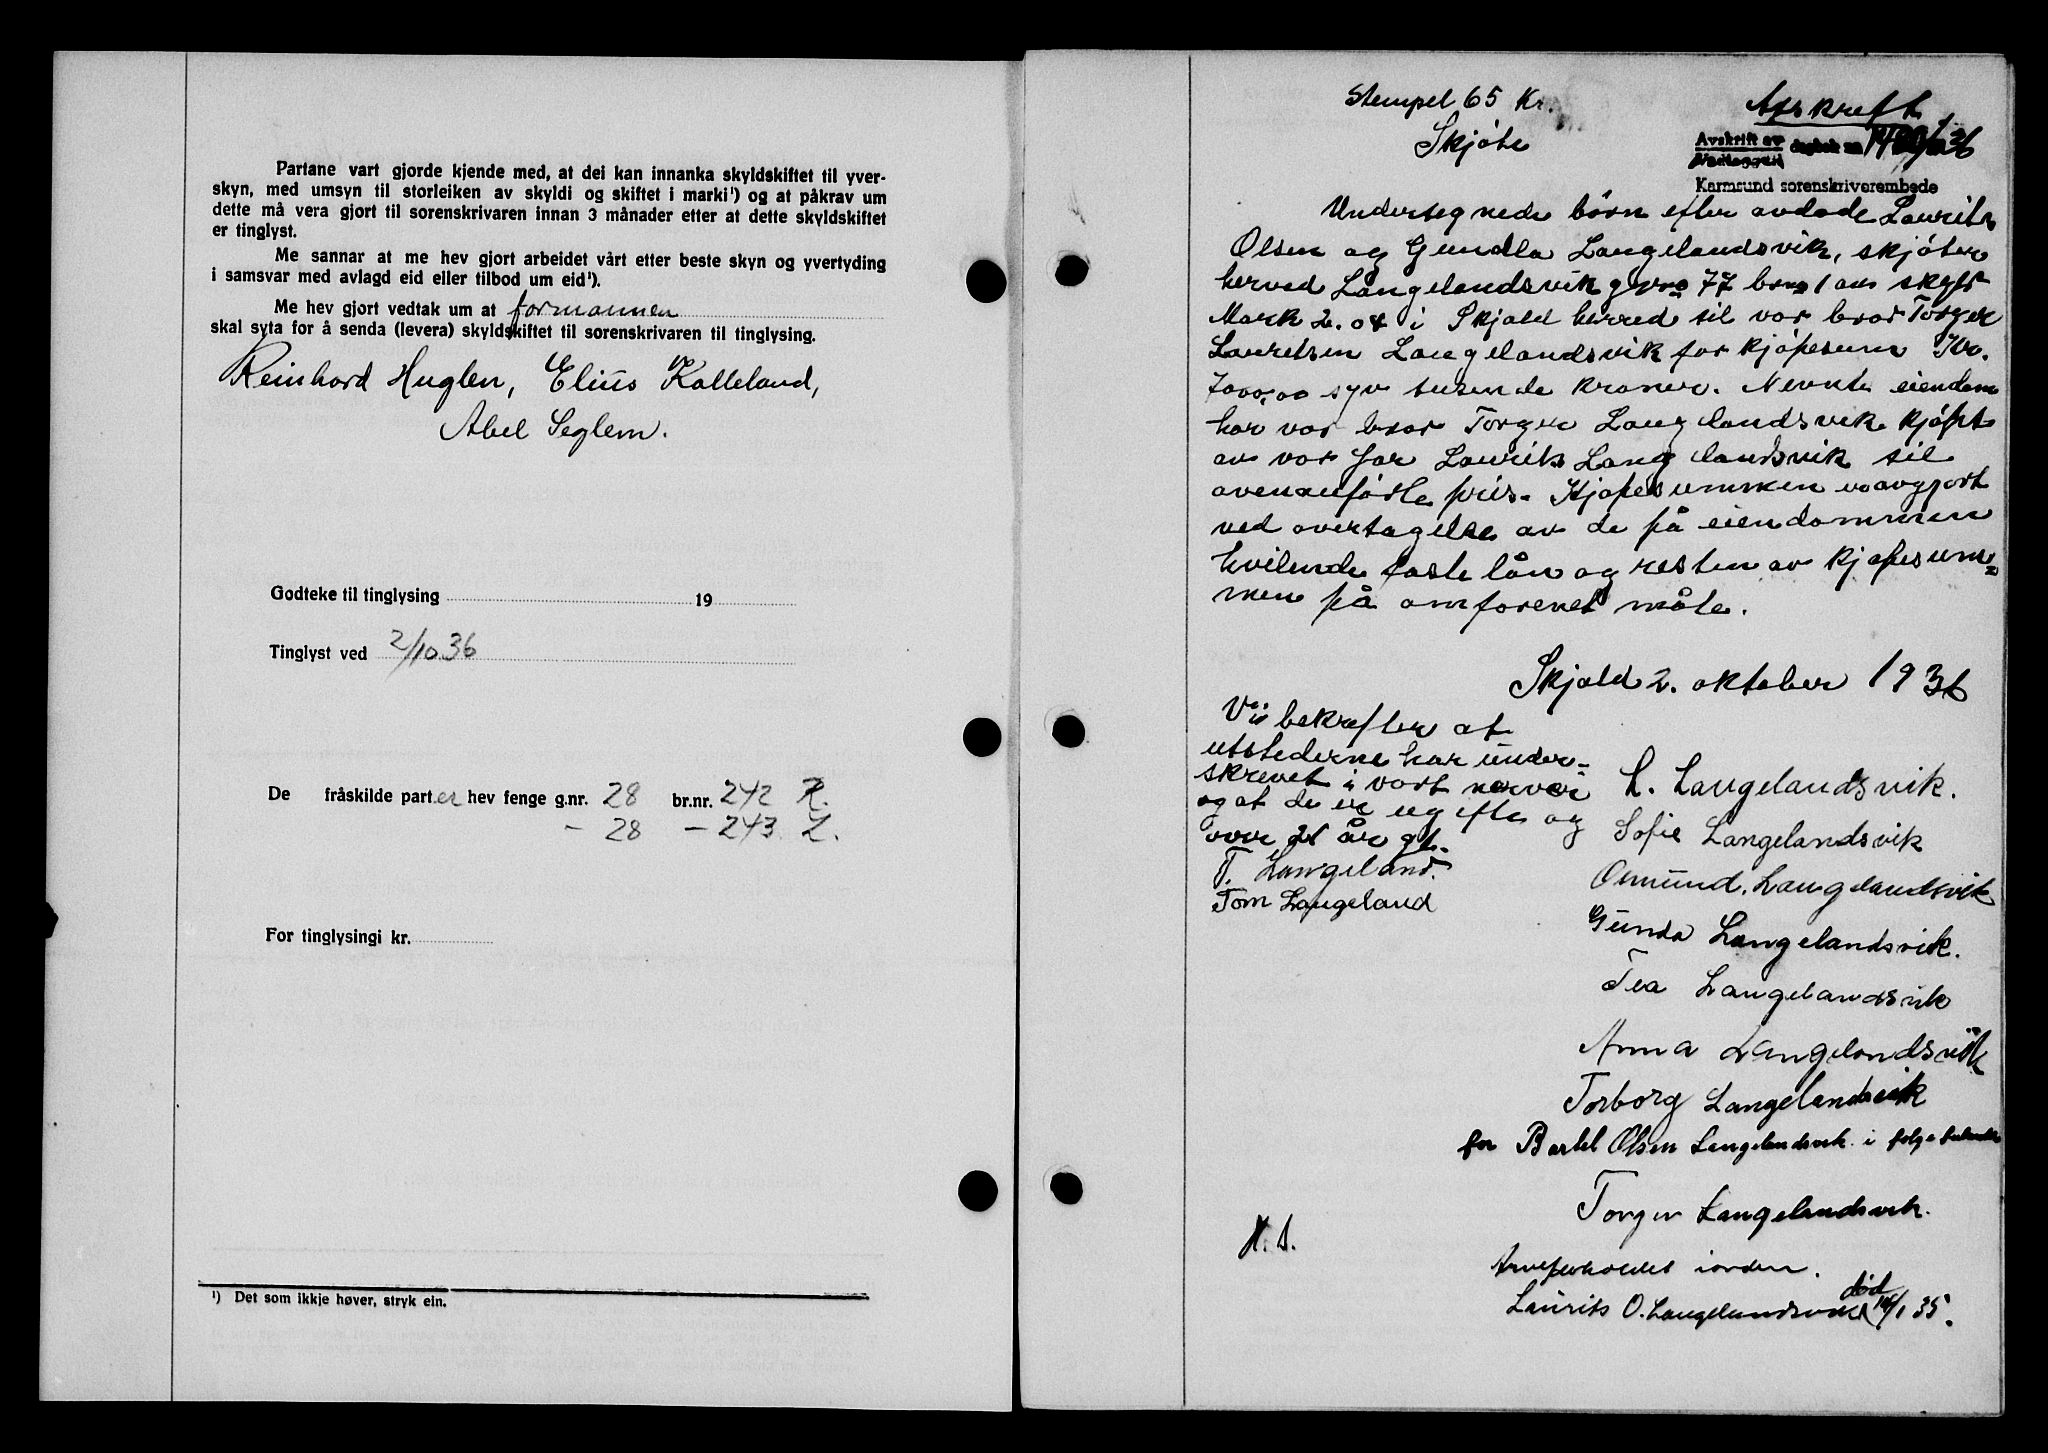 Partane vart gjorde kjende med, at dei kan innanka skyldskiftet til yver-
skyn, med umsyn til storleiken av skyldi og skiftet i marki¹) og at påkrav um
dette må vera gjort til sorenskrivaren innan 3 månader etter at dette skyldskiftet
er tinglyst.
Me sannar at me hev gjort arbeidet vårt etter beste skyn og yvertyding
i samsvar med avlagd eid eller tilbod um eid¹).
Me hev gjort vedtak um at formannen
skal syta for å senda (levera) skyldskiftet til sorenskrivaren til tinglysing.
Reinhard Huglen, Elius Kalleland,
Abel Seglem.
Godteke til tinglysing 19
Tinglyst ved 2/10 36
De fråskilde parter hev fenge g.nr. 28 br.nr. 242
- 28 - 243
For tinglysingi kr.
¹) Det som ikkje høver, stryk ein.
Stempel 65 Kr.
Skjøte
Afskreft
Avskrift av dagbok nr.
Karmsund sorenskriverembede
Undersegnede börn efter avdöde Laurits
Olsen og Gundla Langelandsvik, skjöter
herved Langelandsvik gnr 77 brno 1 av skyld
Mark 2.04 i Skjold herred til vor bror Torger
Lauritsen Langelandsvik for kjöpesum Kr.
7000,00 syv tusende kroner. Nevnte eiendom
har vor bror Torger Langelandsvik kjöpt
av vor far Laurits Langelandsvik til
ovenanförte pris. Kjöpesummen er avgjort
ved overtagelse av de på eiendommen
hvilende faste lån og resten av kjöpesum=
men på omforenet måte.
Skjold 2. oktober 1936
Vi bekrefter at
utstederne har under-
skrevet i vort nerver
og at de er ugifte og
over 21 år gl.
T. Langeland.
Tom Langeland
L. Langelandsvik.
Sofie Langelandsvik
Osmund. Langelandsvik
Gunda Langelandsvik.
Tea Langelandsvik
Anna Langelandsvik
Torborg Langelandsvik
for Bertel Olsen Langelandsvik i følge fuldmakt
Torger Langelandsvik.
Arveforholdet iorden.
Laurits O. Langelandsvik död 14/1 35.